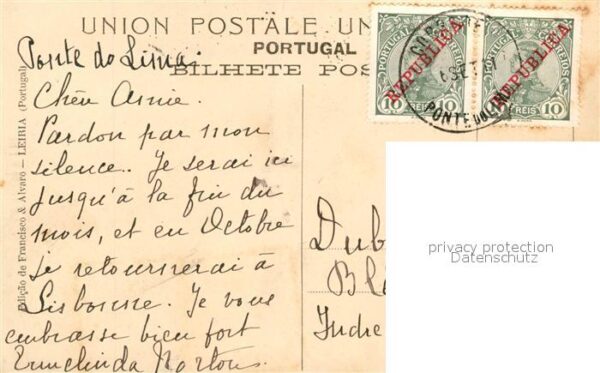 UNION POSTALE UN
PORTUGAL
BILHETE POS
Edição de Francisco & Alvaro — LEIRIA (Portugal)
PORTUGAL CORREIOS
REPUBLICA
10 REIS 10
PORTUGAL CORREIOS
REPUBLICA
10 REIS 10
PONTE DO LIMA
Ponte do Lima
Chère Amie.
Pardon par mon
silence. Je serai ici
jusqu'à la fin du
mois, et en Octobre
je retournerai à
Lisbonne. Je vous
embrasse bien fort
Ermelinda
Dub
Bl
Indre
privacy protection
Datenschutz